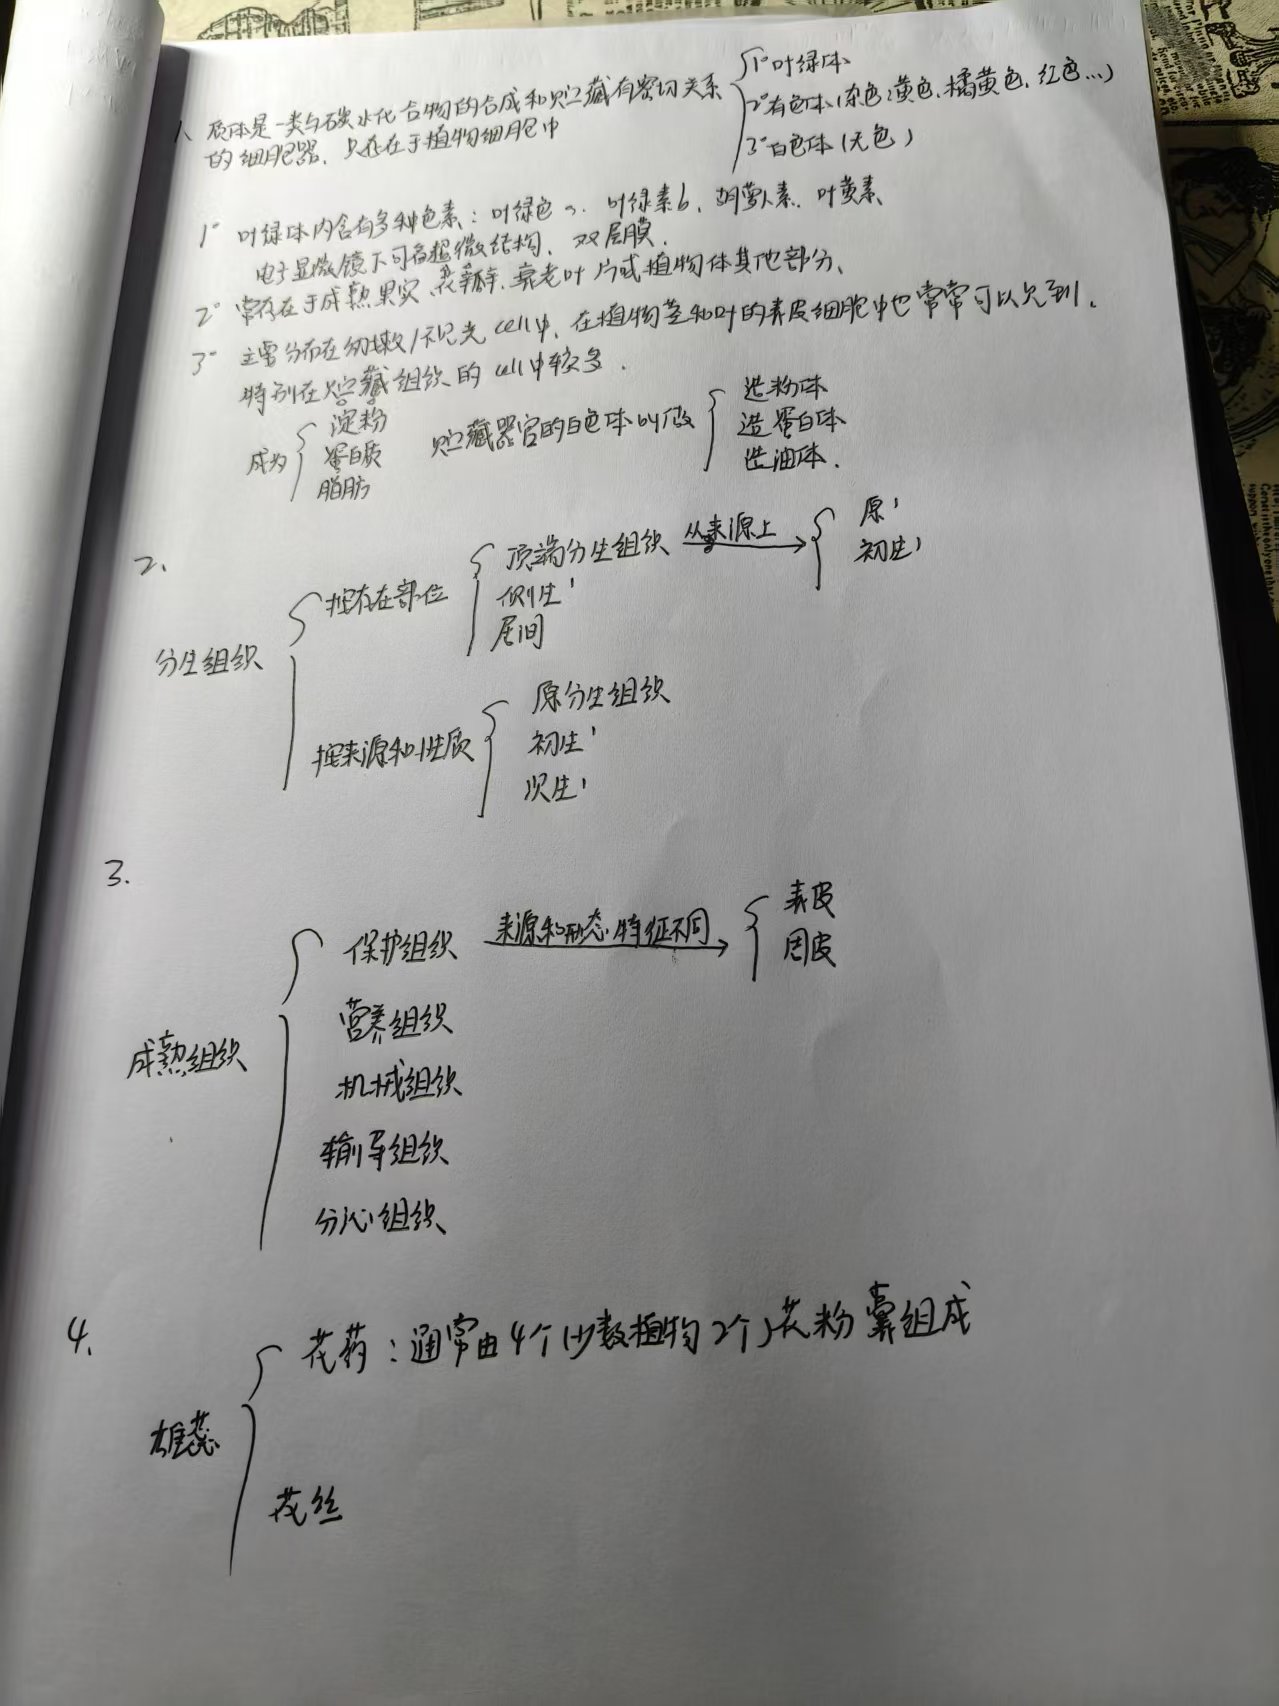 1、质体是一类与碳水化合物的合成和贮藏有密切关系
的细胞器，只存在于植物细胞中
1°叶绿体
2°有色体(杂色:黄色、橘黄色、红色…)
3°白色体(无色)
1° 叶绿体内含有多种色素：叶绿色a、叶绿素b、胡萝卜素、叶黄素、
电子显微镜下可看超微结构、双层膜.
2° 常存在于成熟果实、花瓣、衰老叶片或植物体其他部分、
3° 主要分布在幼嫩/不见光cell中，在植物茎和叶的表皮细胞中也常常可以见到.
特别在贮藏组织的cell中较多.
成为
淀粉
蛋白质
脂肪
贮藏器官的白色体
造粉体
造蛋白体
造油体.
2、
分生组织
按存在部位
顶端分生组织
从来源上
原'
初生'
侧生'
居间
按来源和性质
原分生组织
初生'
次生'
3.
成熟组织
保护组织
来源和形态特征不同
表皮
周皮
营养组织
机械组织
输导组织
分泌组织
4、
雄蕊
花药：通常由4个(少数植物2个)花粉囊组成
花丝